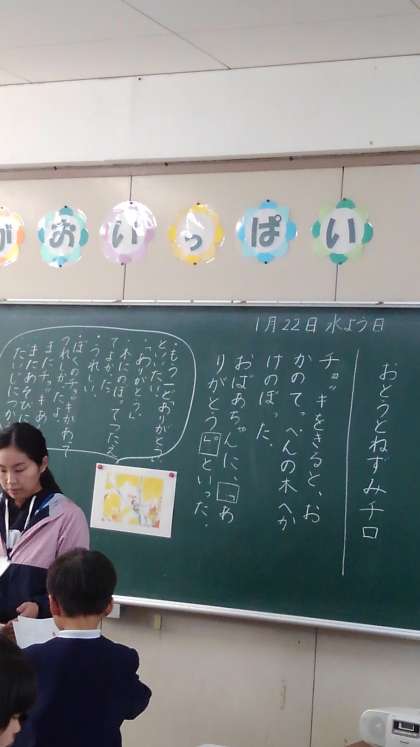 がおいっぱい
1月22日 水よう日
おとうとねずみチロ
チョッキをきると、お
かのてっぺんの木へか
けのぼった。
おばあちゃんに、「あ
りがとう」といった。
・もう一どありがとう
といいたい。
・ありがとう。
・木にのぼってつたえ
てよかった。
・うれしい。
・ぼくのチョッキがあって
うれしかったよ。
またあそびに